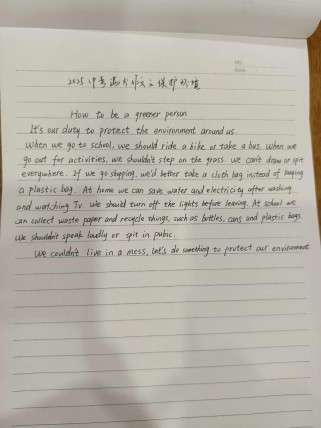 2025中考满分作文之保护环境
How to be a greener person
It's our duty to protect the environment around us.
When we go to school, we should ride a bike or take a bus. When we
go out for activities, we shouldn't step on the grass. We can't draw or spit
everywhere. If we go shopping, we'd better take a cloth bag instead of buying
a plastic bag. At home we can save water and electricity after washing
and watching TV. We should turn off the lights before leaving. At school we
can collect waste paper and recycle things, such as bottles, cans and plastic bags.
We shouldn't speak loudly or spit in pubic.
We couldn't live in a mess, let's do something to protect our environment